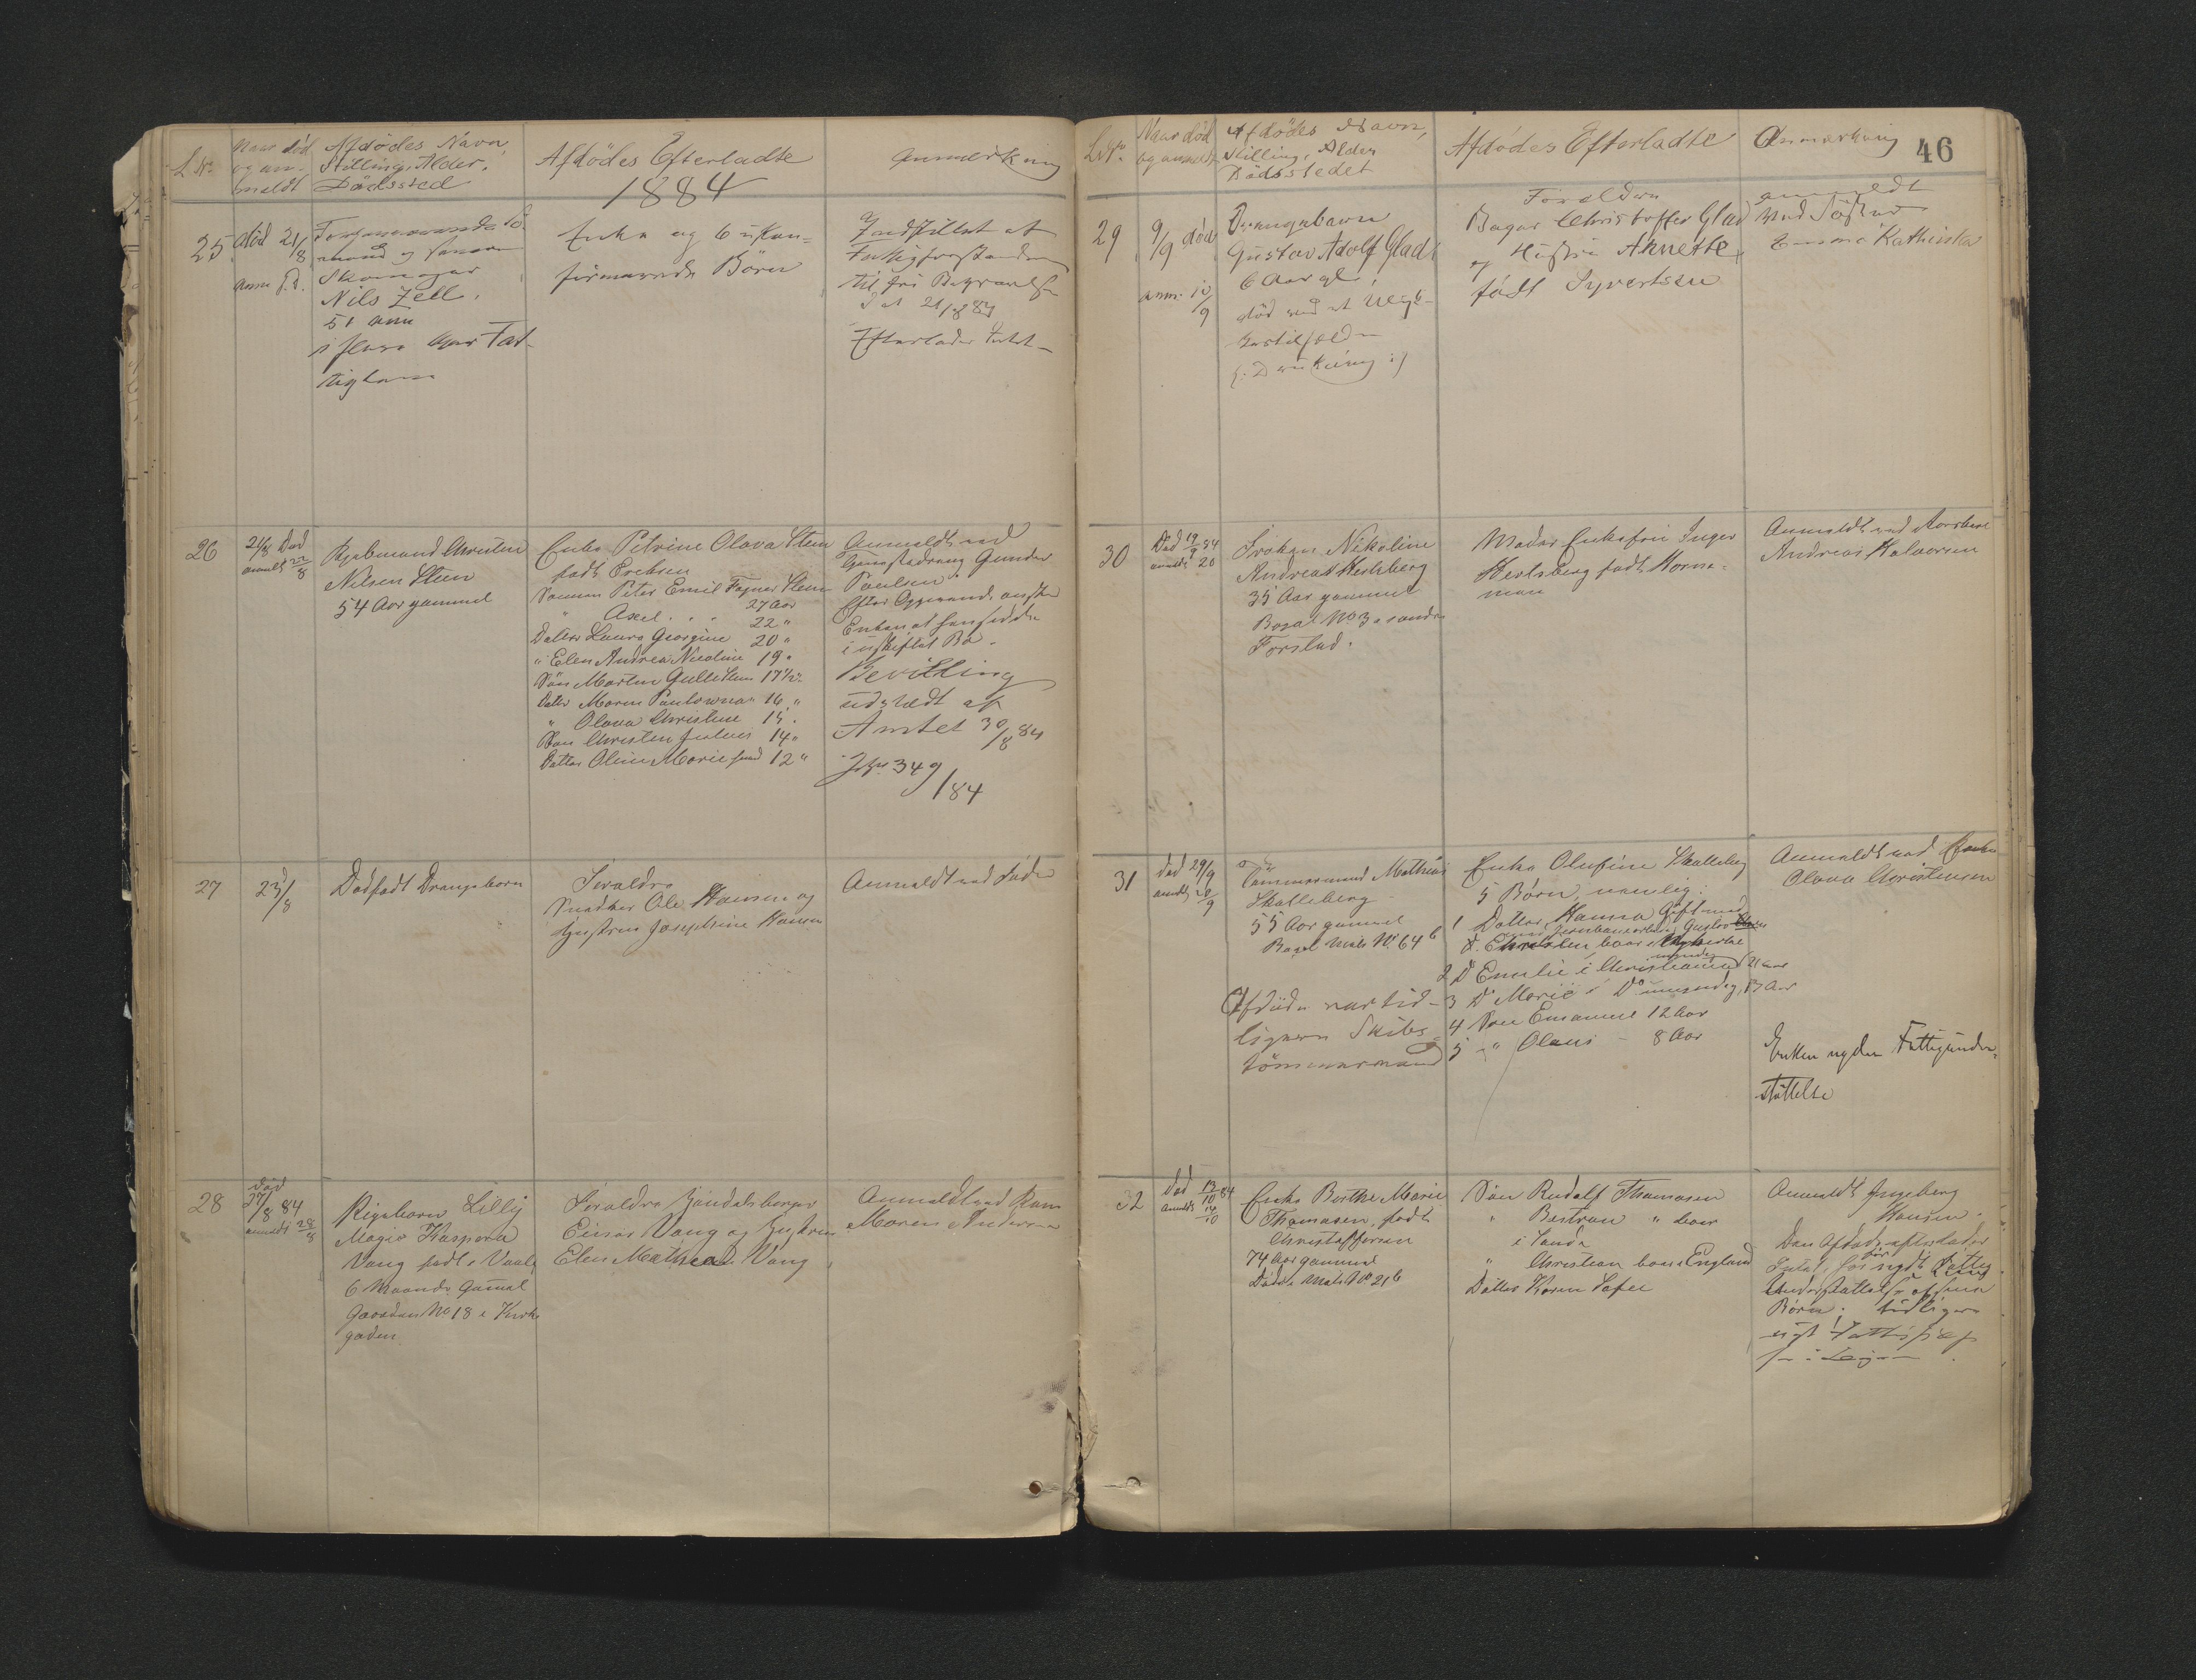 L No
Naar död
og an-
meldt
Afdödes Navn,
Stilling, Alder.
Dödssted
Afdödes Efterladte
1884
Anmerkning
25
död 21/8
anm s. d.
Forhenværende Sö-
mand og senere
Skomager
Nils Zell.
51 aar
i flere Aar Fat-
tiglem
Enke og 6 ukon-
firmerede Börn
Indstillet af
Fattigforstanderen
til fri Begravelse
d 21/8 84
Efterlader Intet
26
21/8 Död
anmeldt 22/8
Kjöbmand Christen
Nilsen Steen
54 Aar gammel
Enke Petrine Olava Steen
födt Erebsen
Sönnen Peter Emil Fagner Steen
27 Aar
" Axel 22 "
Datter Laura Georgine 20 "
" Elen Andrea Nicoline 19 "
Sön Morten Gulle Steen 17½ "
Datter Maren Paulowna 16 "
" Olava Christine 15 "
Sön Christen Julius 14 "
Datter Oline Marie 12 "
Anmeldt ved
Tjenestedreng Gunder
Paulsen
Efter Opgivende ønsker
Enken at hensidde
i uskiftet Bo.
Bevilling
udstædt af
Amtet 30/8 84
Jr No 349/84
27
23/8
Dödfödt Drengebarn
Foræludre
Snedker Ole Hansen og
Hustru Josephine Hansen
Anmeldt ved Fader
28
död
27/8 84
anmeldt 28/8
Pigebarn Lilly
Magie Kaspera
Vang födt i Vaale
6 Maaneder Gammel
Gaarden No 18 i Kirke
gaden
Forældre Gaardsborger
Einar Vang og Hustru
Elen Mathea Vang
Anmeldt ved Kone
Maren Andersen
46
L. No.
Naar död
og anmeldt
Afdödes Navn,
Stilling, Alder
Dödsstedet
Afdödes Efterladte
Anmerkning
29
9/9 död
anm. 10/9
Drengebarn
Gustav Adolf Glad
6 Aar gl,
död ved et Ulyk-
kestilfælde
(: Drukning :)
Forældre
Bager Christoffer Glad
og Hustru Annette,
födt Syvertsen
anmeldt
ved Söster
Emma Kathinka
30
Död 19/9 84
anmeldt 20
Fröken Nikoline
Andrea Hertsberg
35 Aar gammel
Bopæl No 3 søndre
Forstad.
Moder Enkefru Inger
Hertsberg födt Horne-
man
Anmeldt ved
Andreas Halvorsen
31
död 29/9
anmeldt /9
Tömmermand Mathias
Skalleberg
55 Aar gammel
Bopæl Matr No 64 b
Afdöde var tid-
ligere Skibs-
tömmermand
Enke Olufine Skalleberg
5 Börn, nemlig:
1 Datter Hanna Gift med
Gustav
D. Christen boer
2 D Emilie i Christiania myndig 21 aar
3 D Marie i Do umyndig, Aar
4 Sön Emanuel 12 Aar
5 " Olaus - 8 Aar
Anmeldt ved Enken
Olava Christensen
Enken nyder Fattigunder-
stöttelse
32
Död 13/10 84
anmeldt 14/10
Enke Berthe Marie
Thomasen, født
Christoffersen
74 Aar gammel
Döde i Matr No 21 b
Sön Rudolf Thomasen
" Bertran " boer
i Sande
" Christian boer i England
Datter Karen Sofie
Anmeldt Ingeborg
Hansen.
Den Afdöde efterlader
Intet, har nydt Fattig
Understöttelse af sine
Börn. tidligere